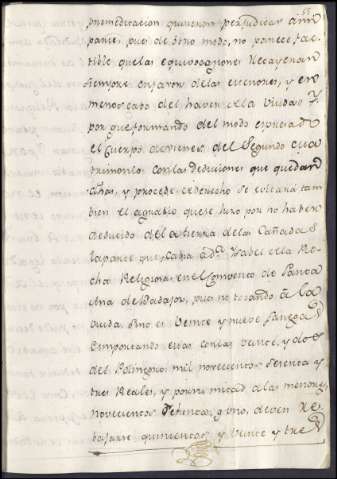 premeditacion quisieron perjudicar à mi
parte, pues de otro modo, no parece fac
tible que las equivocaciones recayeran
siempre en favor de las menores, y en
menoscabo del haver de la Viuda
por que formando del modo expresado
el cuerpo de vienes del Segundo ma
trimonio con las deduciones que quedan
dichas, y procede de derecho se evitará tam
bien el agravio que se hizo por no haber
deducido de la tierra de las Cañadas
la parte que cabia à Dª Ysabel de la Ro
cha Religiosa en el Convento de Santa
Ana de Badajoz, pues no tocando à la
Viuda, sino es Veinte y nueve fanegas
componiendo estas con las veinte, y dos
del Polinegro, mil novecientos setenta y
tres Reales, y por mitad à las menores
novecientos ochenta, y uno, deven re
bajarse quinientos y veinte y tres